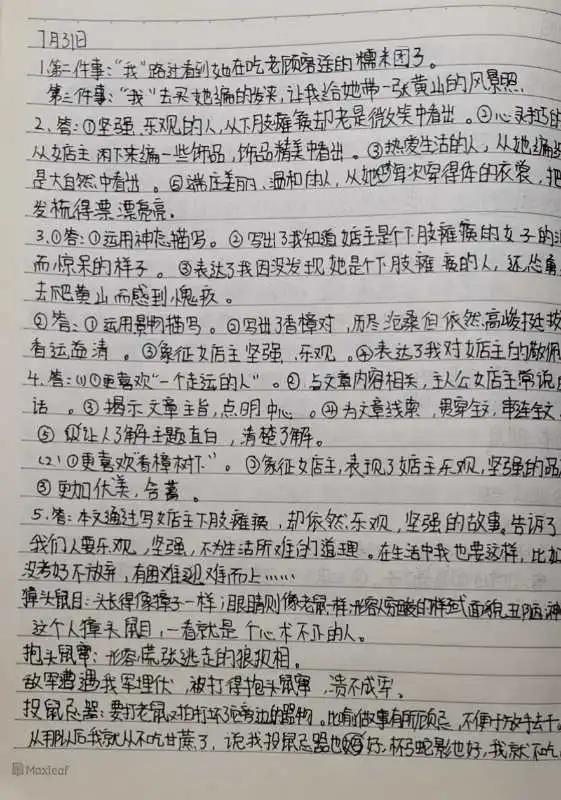 7月31日
1.第二件事:“我”路过看到她在吃老顾客送的糯米团子。
第三件事:“我”去买她编的发夹,让我给她带一张黄山的风景照
2.答:①坚强、乐观的人,从下肢瘫痪却老是微笑中看出。②心灵手巧的
从女店主闲下来编一些饰品,饰品精美中看出。③热爱生活的人,从她编
是大自然中看出。⑤端庄美丽、温和的人,从她每次穿得体的衣裳,把
发梳得漂漂亮亮。
3.①答:①运用神态描写。②写出了我知道女店主是个下肢瘫痪的女子的
而惊呆的样子。③表达了我因没发现她是个下肢瘫痪的人,还怂恿
去爬黄山而感到愧疚。
②答:①运用景物描写。②写出了香樟树,历尽沧桑但依然高峻挺拔
香远益清。③象征女店主坚强、乐观。④表达了我对女店主的敬佩
4.答:(1)①更喜欢“一个走远的人”。②与文章内容相关,主人公女店主常说
话。③揭示文章主旨,点明中心。④为文章线索,贯穿全文,串连全文
⑤让人了解主题直白,清楚了解。
(2)①更喜欢“香樟树下”。③象征女店主,表现了女店主乐观,坚强的品
③更加优美,含蓄。
5.答:本文通过写女店主下肢瘫痪,却依然乐观,坚强的故事。告诉了
我们人要乐观,坚强,不为生活所难的道理。在生活中我也要这样,比如
没考好不放弃,有困难迎难而上……
獐头鼠目:头长得像獐子一样;眼睛则像老鼠一样,形容人穷酸的样或面貌丑陋,神
这个人獐头鼠目,一看就是个心术不正的人。
抱头鼠窜:形容慌张逃走的狼狈相。
敌军遭遇我军埋伏,被打得抱头鼠窜,溃不成军。
投鼠忌器:要打老鼠又怕打坏了它旁边的器物。比喻做事有所顾忌,不便于放手去干。
从那以后我就从不吃甘蔗了,说我投鼠忌器也好,杯弓蛇影也好,我就不吃
Maxleaf